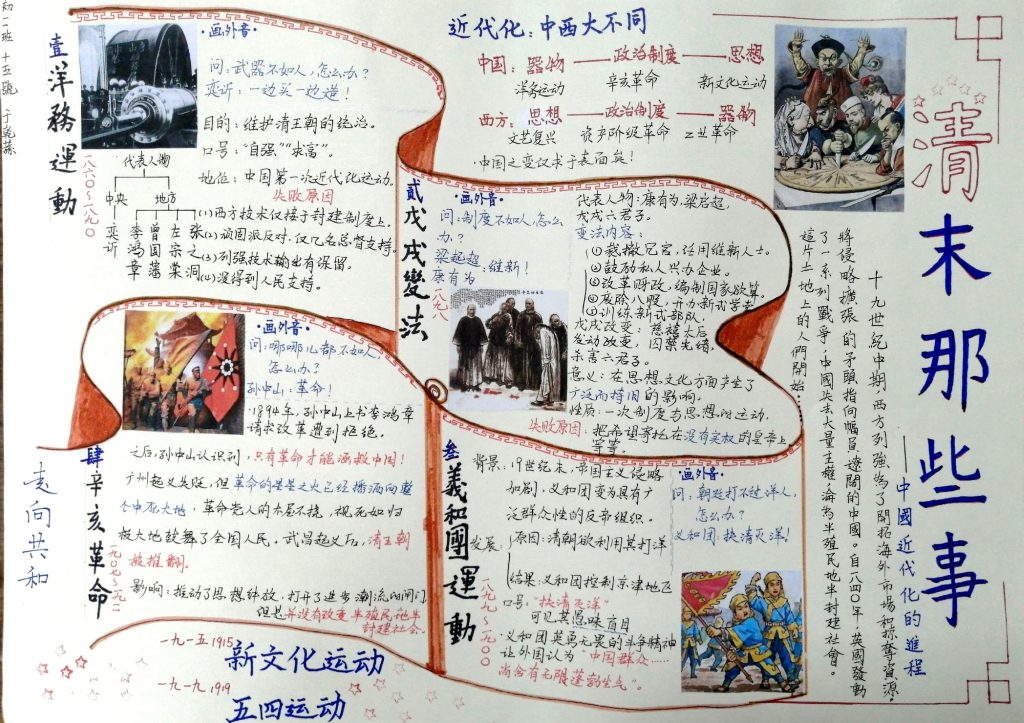 清末那些事
——中國近代化的進程
十九世紀中期，西方列強為了開拓海外市場和掠奪資源，
將侵略擴張的矛頭指向幅員遼闊的中國。自一八四〇年，英國發動
了一系列戰爭，中國失去大量主權，淪為半殖民地半封建社會。
這片土地上的人們開始……
近代化：中西大不同
中国：器物——政治制度——思想
洋务运动 辛亥革命 新文化运动
西方：思想——政治制度——器物
文艺复兴 资产阶级革命 工业革命
·中国之变仅求于表面矣！
壹洋務運動
一八六〇～一八九〇
·画外音·
问：武器不如人，怎么办？
奕䜣：一边买一边造！
目的：维护清王朝的统治。
口号："自强""求富"。
地位：中国第一次近代化运动。
代表人物
中央 地方
奕䜣
李鸿章
曾国藩
左宗棠
张之洞
失败原因
(1)西方技术仅嫁于封建制度上。
(2)顽固派反对，仅几名总督支持。
(3)列强技术输出有保留。
(4)没得到人民支持。
贰戊戌變法
一八九八
·画外音·
问：制度不如人，怎么
办？
梁起超
康有为：维新！
代表人物：康有为，梁启超，
戊戌六君子。
变法内容：
①裁撤冗官，任用维新人士。
②鼓励私人兴办企业。
③改革财政，编制国家欲算。
④废除八股，开办新式学堂
⑤训练新式部队。
戊戌政变：慈禧太后
发动政变，囚禁光绪，
杀害六君子。
意义：在思想文化方面产生了
广泛而持旧的影响。
性质：一次制度与思想的运动。
失败原因：把希望寄托在没有实权的皇帝上
等等。
叁義和團運動
一八九九～一九〇〇
背景：19世纪末，帝国主义侵略
加剧，义和团变为具有广
泛群众性的反帝组织。
发展：
原因：清朝欲利用其打洋
结果：义和团控制京津地区
口号："扶清灭洋"
可见其愚昧盲目
·义和团英勇无畏的斗争精神
让外国认为"中国群众……
尚含有无限蓬勃生气"。
·画外音·
问：朝廷打不过洋人，
怎么办？
义和团：扶清灭洋！
肆辛亥革命
一九〇七～一九一一
·画外音·
问：哪哪儿都不如人，
怎么办？
孙中山：革命！
·1894年，孙中山上书李鸿章
请求改革遭到拒绝。
之后，孙中山认识到，只有革命才能拯救中国！
广州起义失败，但革命的星星之火已经播洒向整
个中华大地，革命党人的不屈不挠，视死如归
极大地鼓舞了全国人民。武昌起义后，清王朝
被推翻。
影响：推动了思想解放，打开了进步潮流的闸门
但是并没有改变半殖民地半
封建社会。
走向共和
一九一五1915
新文化运动
一九一九1919
五四运动